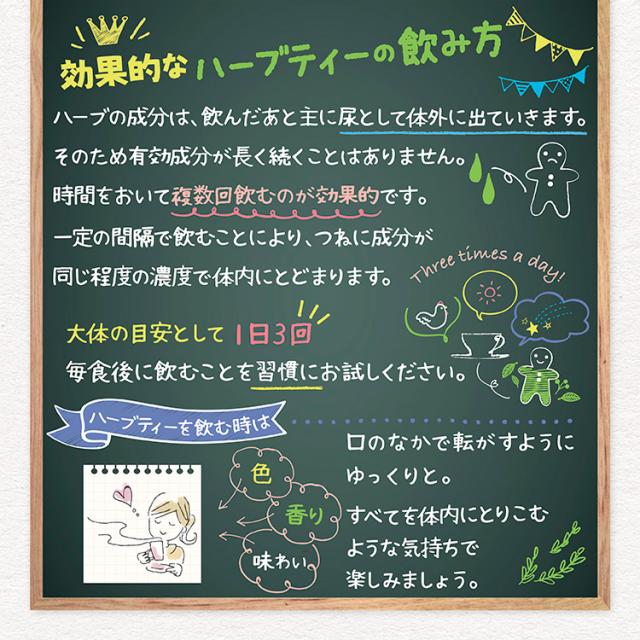 効果的なハーブティーの飲み方
ハーブの成分は、飲んだあと主に尿として体外に出ていきます。
そのため有効成分が長く続くことはありません。
時間をおいて複数回飲むのが効果的です。
一定の間隔で飲むことにより、つねに成分が
同じ程度の濃度で体内にとどまります。
Three times a day!
大体の目安として1日3回
毎食後に飲むことを習慣にお試しください。
ハーブティーを飲む時は
色
香り
味わい
口のなかで転がすように
ゆっくりと。
すべてを体内にとりこむ
ような気持ちで
楽しみましょう。